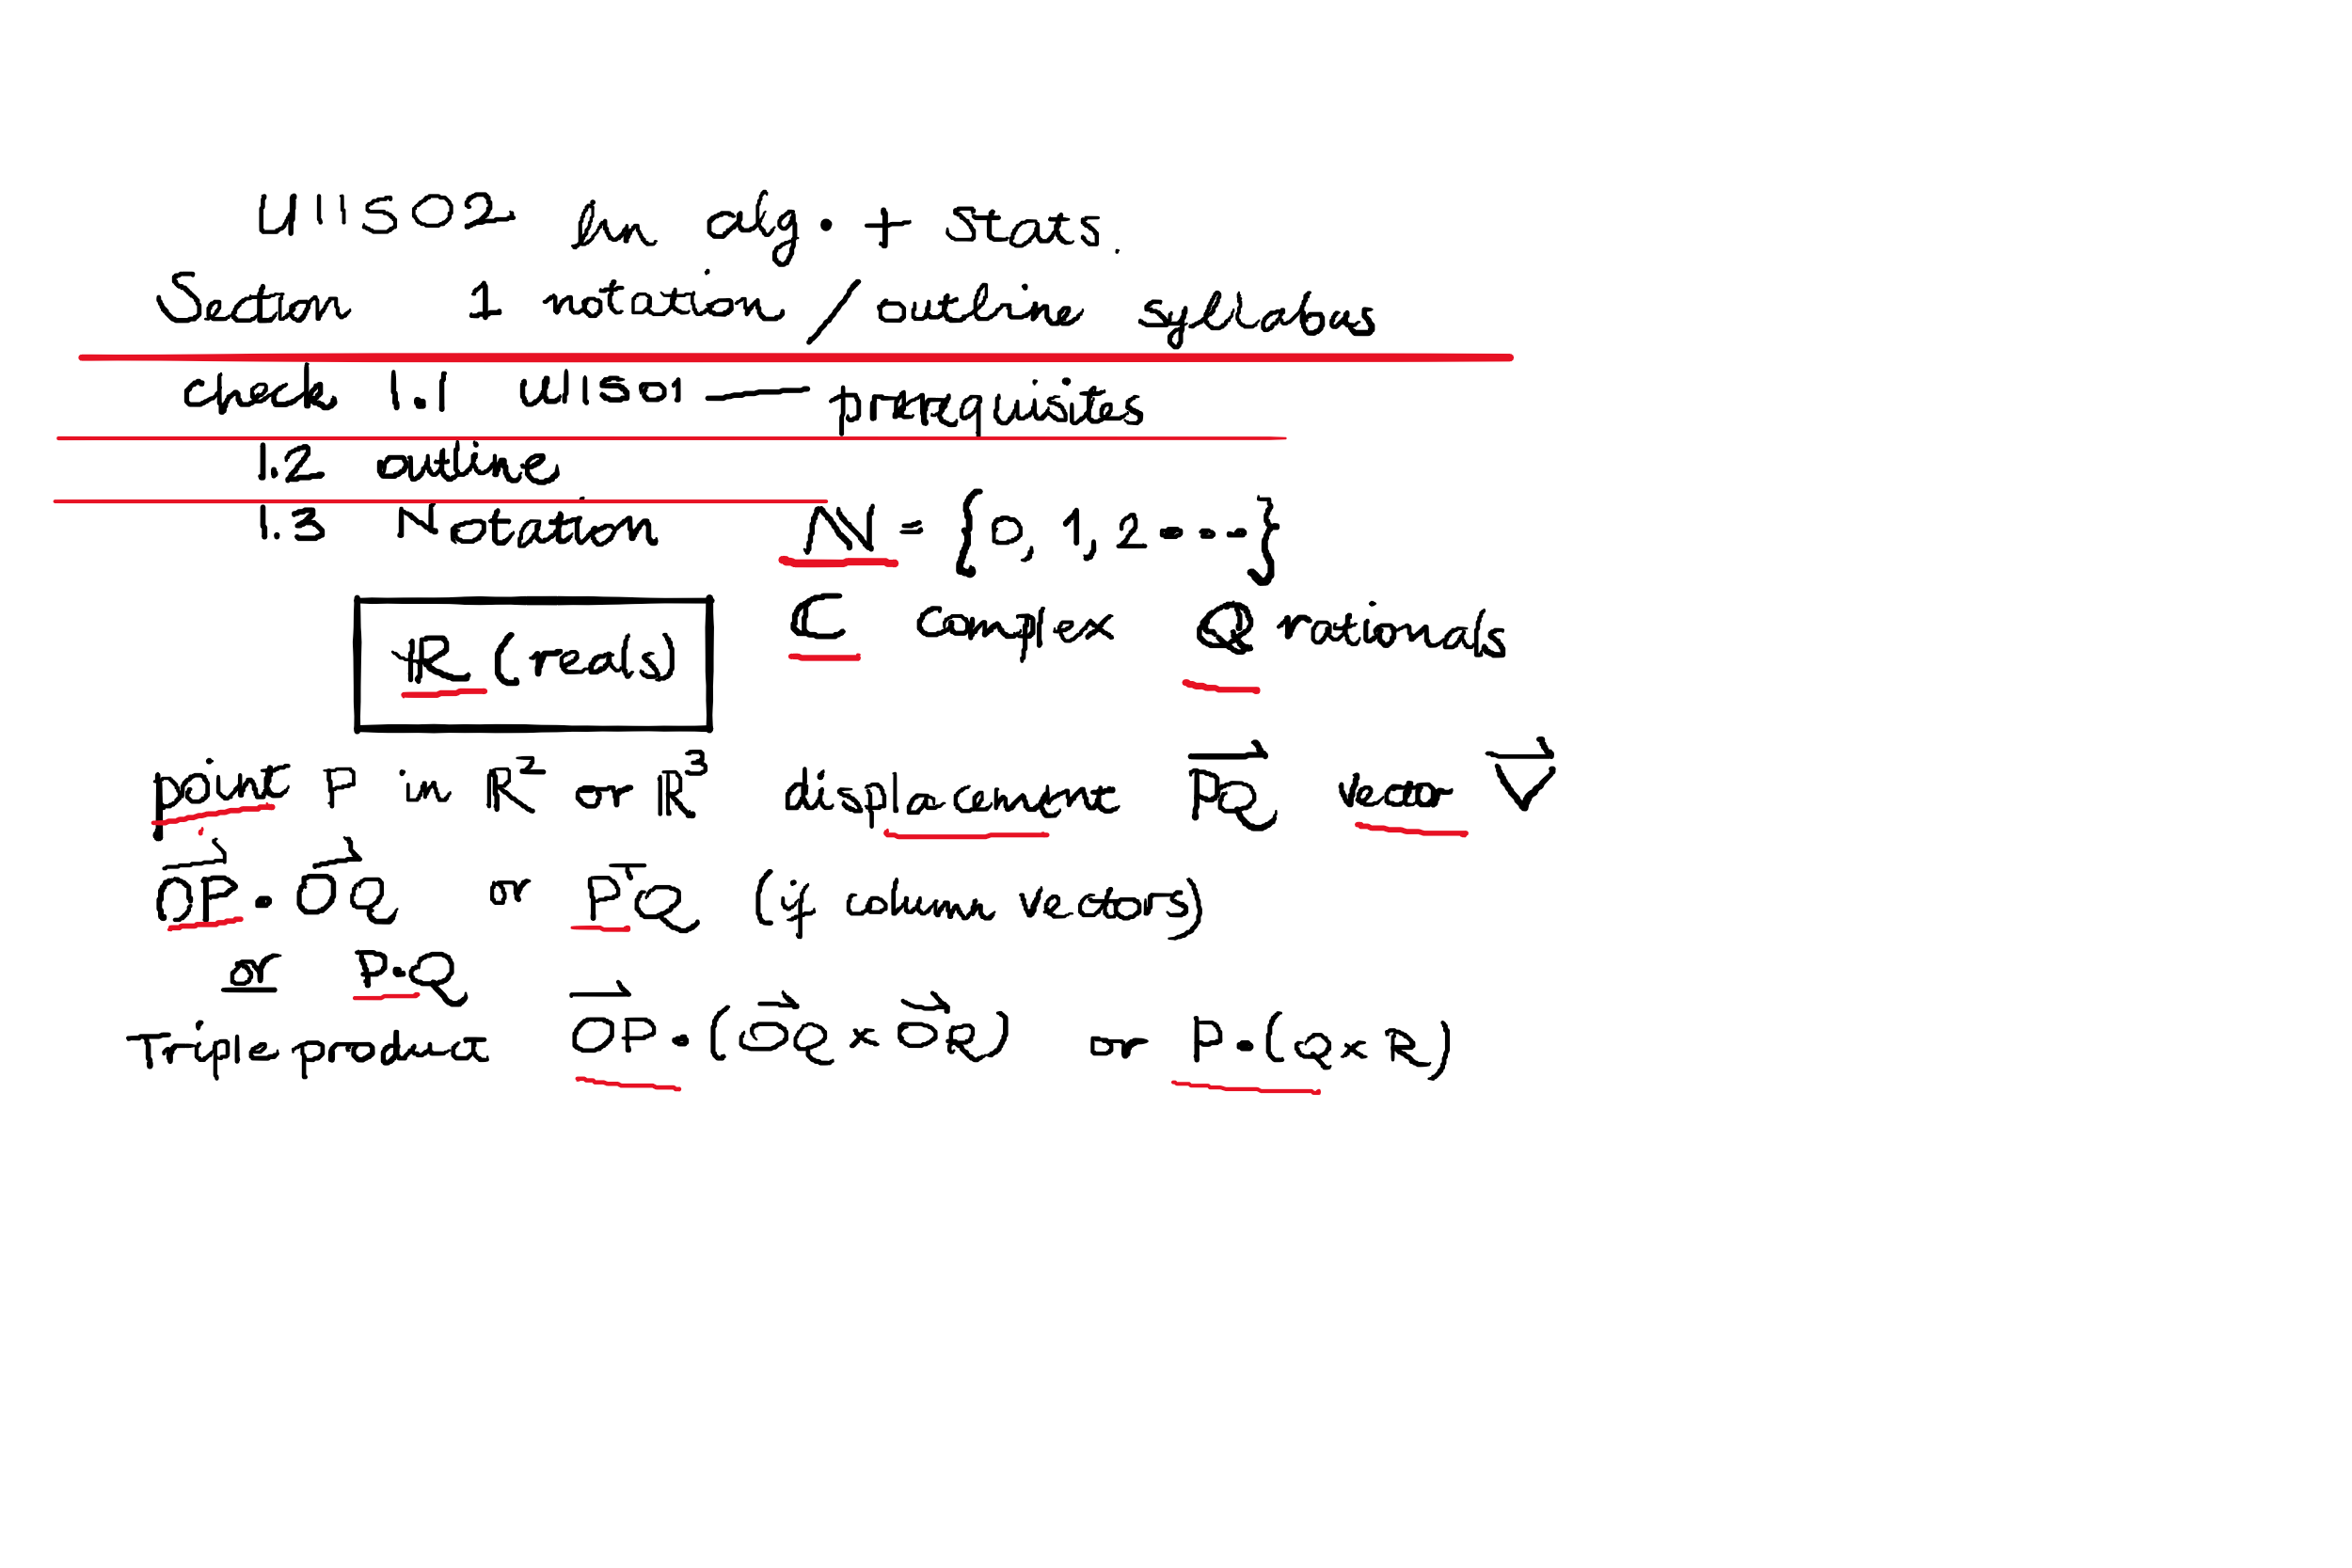 U11502 lin alg. + stats.
Section 1 notation / outline syllabus
check 1.1 U11501 — prerequisites
1.2 outline
1.3 Notation ℕ = {0, 1, 2 ---}
ℝ (reals) ℂ complex ℚ rationals
point P in ℝ² or ℝ³ displacement P͞Q⃗ vector V⃗
OP⃗ • OQ⃗ or PᵀQ (if column vectors)
or P•Q
Triple product OP⃗ • (OQ⃗ × OR⃗) or P•(Q×R)